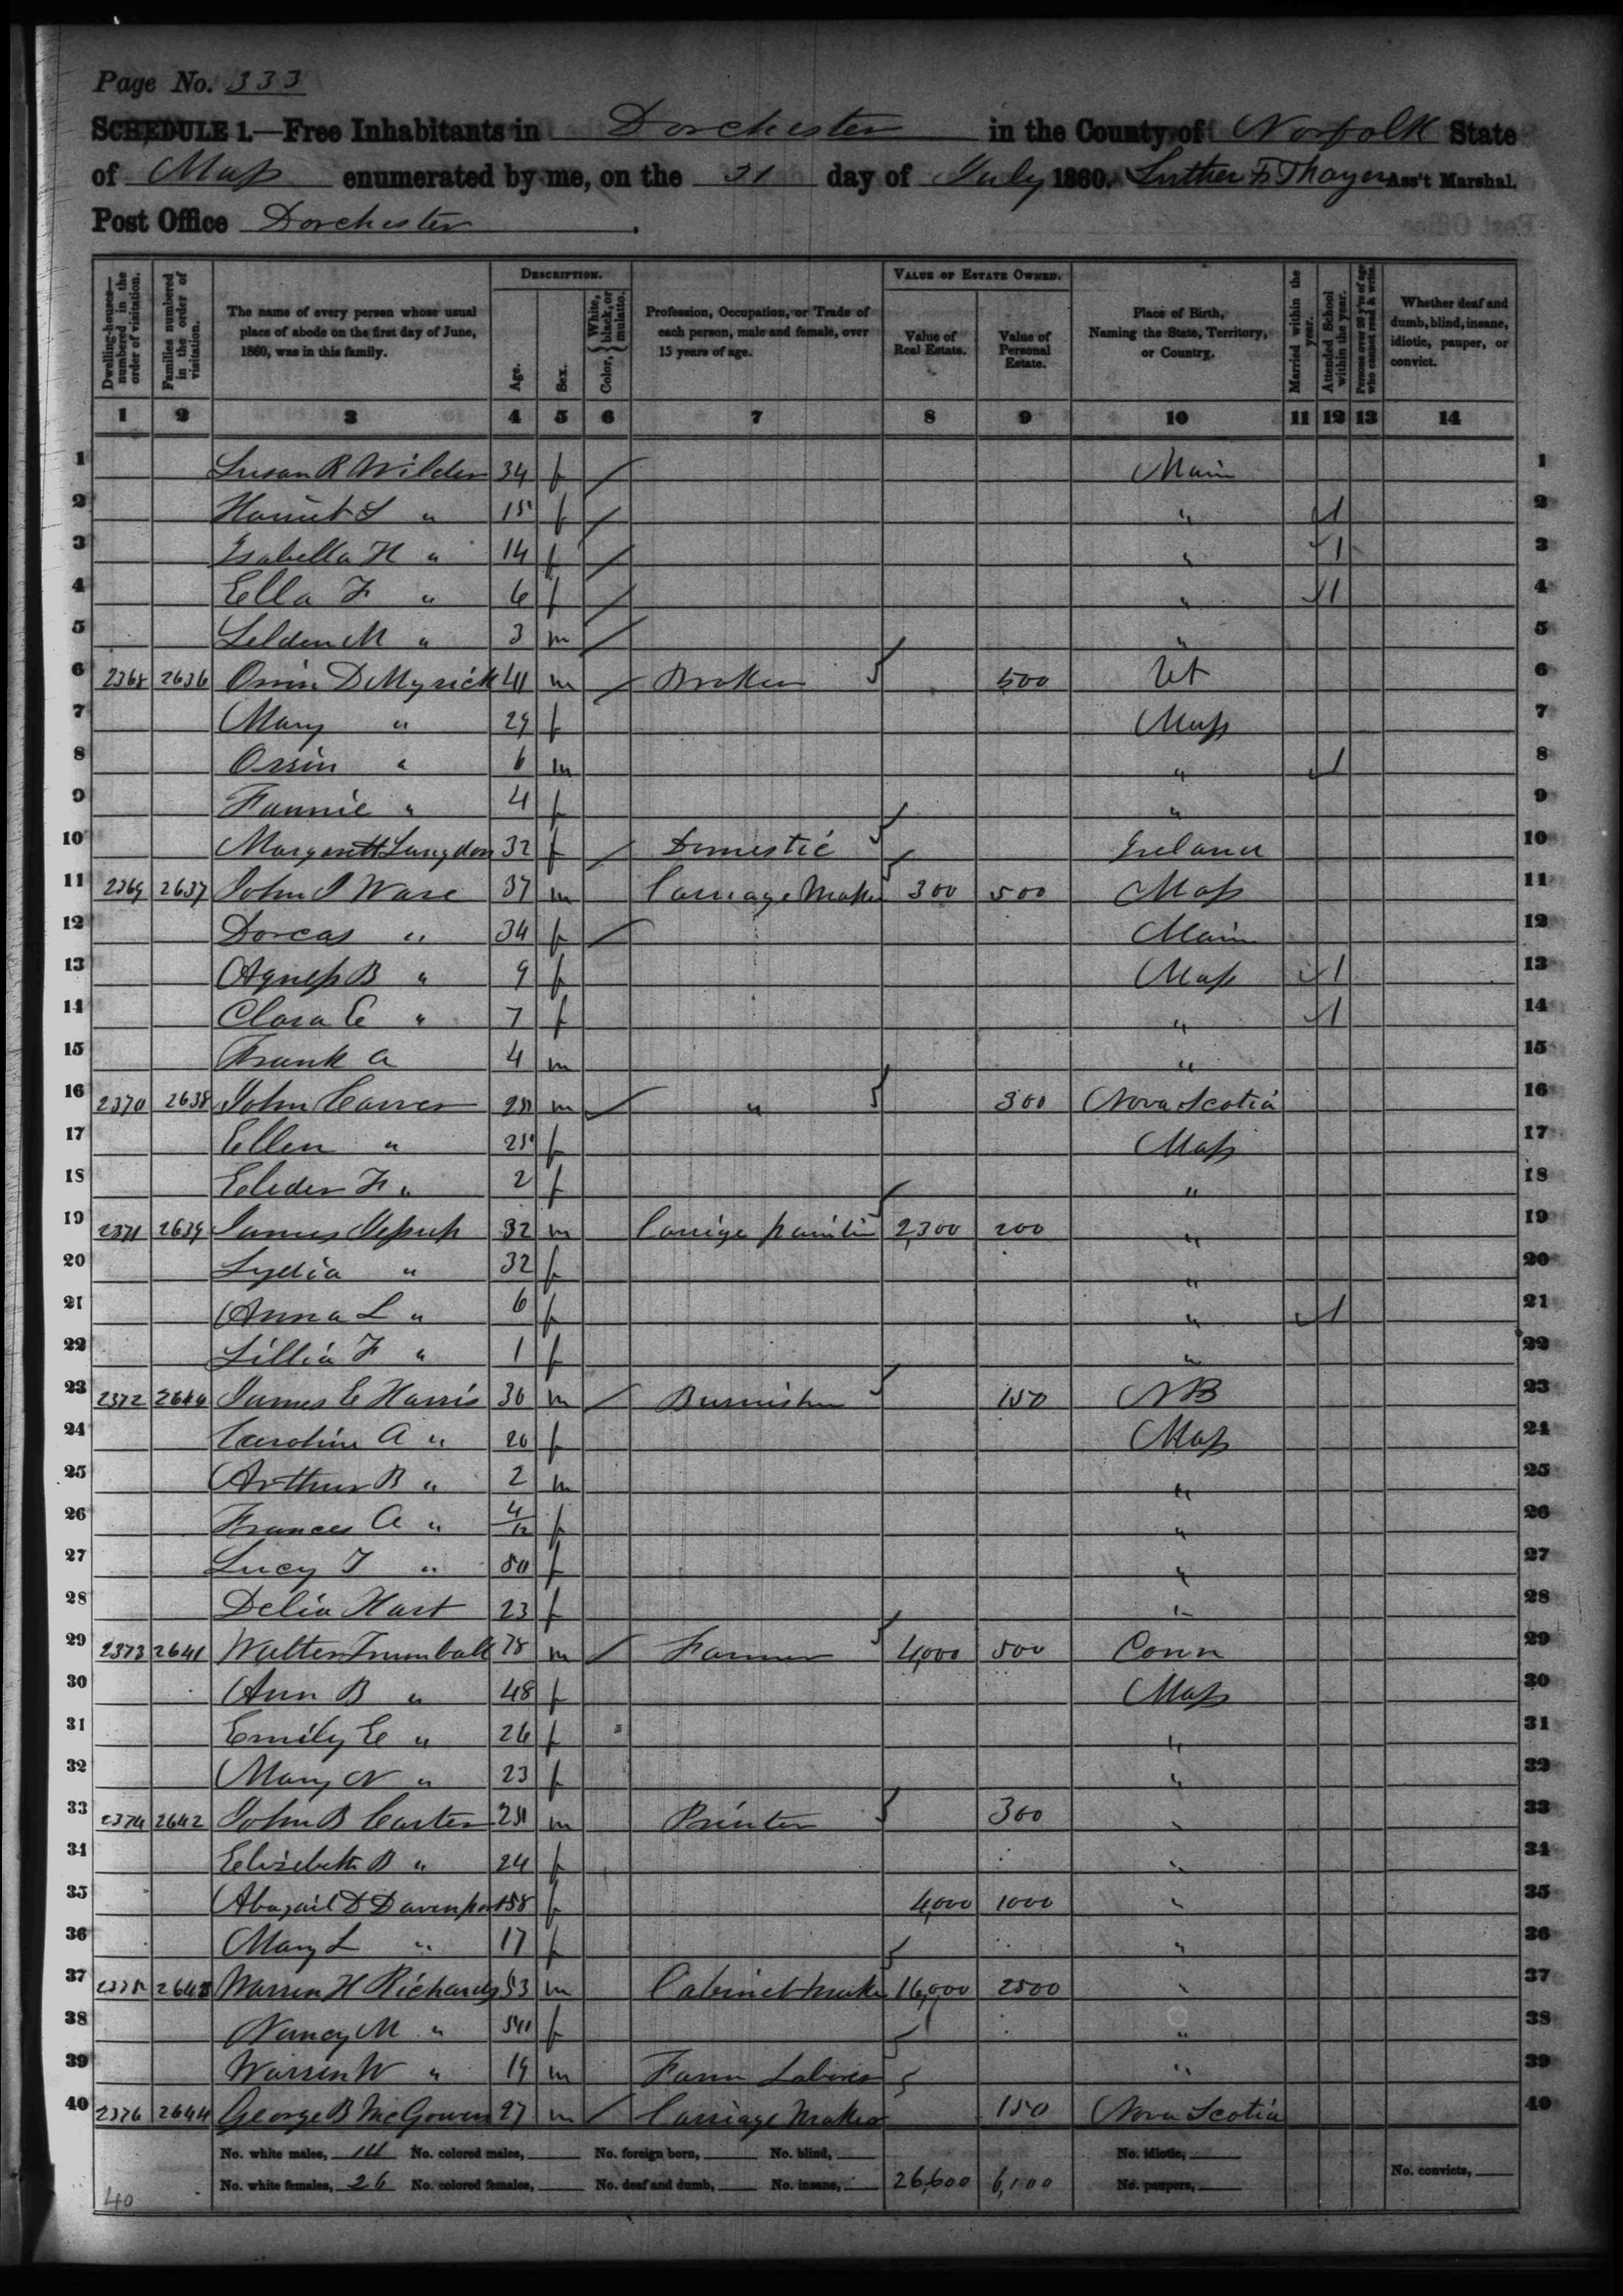 Page No. 333
SCHEDULE 1.—Free Inhabitants in Dorchester in the County of Norfolk State
of Mass enumerated by me, on the 31 day of July 1860. Luther F Thayer Ass't Marshal.
Post Office Dorchester.
Dwelling-houses—numbered in the order of visitation.
Families numbered in the order of visitation.
The name of every person whose usual place of abode on the first day of June, 1860, was in this family.
DESCRIPTION.
Age.
Sex.
Color, { White, black, or mulatto.
Profession, Occupation, or Trade of each person, male and female, over 15 years of age.
VALUE OF ESTATE OWNED.
Value of Real Estate.
Value of Personal Estate.
Place of Birth, Naming the State, Territory, or Country.
Married within the year.
Attended School within the year.
Persons over 20 y'rs of age who cannot read & write.
Whether deaf and dumb, blind, insane, idiotic, pauper, or convict.
1 2 3 4 5 6 7 8 9 10 11 12 13 14
1 Susan R Wilder 34 f / Main 1
2 Harriet S " 15 f / " 1 2
3 Isabella H " 14 f / " 1 3
4 Ella F " 6 f / " 1 4
5 Selden M " 3 m / " 5
6 2368 2636 Orrin D Myrick 41 m / Broker 500 Vt 6
7 Mary " 29 f Mass 7
8 Orrin " 6 m " 1 8
9 Fannie " 4 f " 9
10 Margarett Langdon 32 f / Domestic Ireland 10
11 2369 2637 John I Ware 37 m Carriage Maker 300 500 Mass 11
12 Dorcas " 34 f / Main 12
13 Agness B " 9 f Mass 1 13
14 Clara E " 7 f " 1 14
15 Frank A 4 m " 15
16 2370 2638 John Carver m / " 300 Nova Scotia 16
17 Ellen " 25 f Mass 17
18 F " 2 f " 18
19 2371 2639 James Jessup 32 m Carrige painter 2,300 200 " 19
20 Lydia " 32 f " 20
21 Anna L " 6 f " 1 21
22 Lillia F " 1 f " 22
23 2372 2640 James E Harris 30 m / Burnisher 150 NB 23
24 Caroline A " 26 f Mass 24
25 Arthur B " 2 m " 25
26 Frances A " 4/12 f " 26
27 Lucy T " 50 f " 27
28 Delia Hart 23 f " 28
29 2373 2641 Walter Trumball 78 m / Farmer 4,000 500 Conn 29
30 Ann B " 48 f Mass 30
31 Emily E " 26 f " 31
32 Mary N " 23 f " 32
33 2374 2642 John B Carter 25 m Printer 300 " 33
34 Elizebeth B " 24 f " 34
35 Abagail D Davenport 58 f 4,000 1000 " 35
36 Mary L " 17 f " 36
37 2375 2643 Warren H Richards 53 m Cabinet maker 16,000 2500 " 37
38 Nancy M " f " 38
39 Warren W " 19 m Farm Laborer " 39
40 2376 2644 George B McGowen 27 m / Carriage Maker 150 Nova Scotia 40
No. white males, 14 No. colored males, No. foreign born, No. blind, No. idiotic,
No. white females, 26 No. colored females, No. deaf and dumb, No. insane, 26,600 6,100 No. paupers, No. convicts,
40